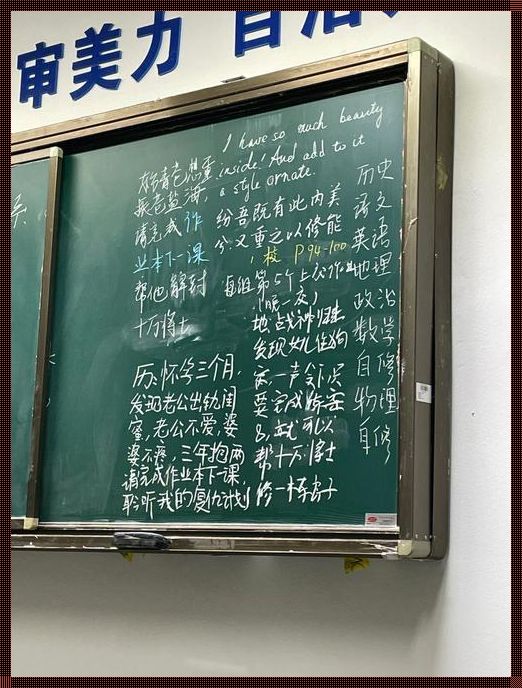 审美力
I have so much beauty
inside! And add to it
a style ornate.
纷吾既有此内美
兮又重之以修能
P94-100
每组第5个上
(晚一交)
请完成作
业本下一课
帮他解封
十万将士
历:怀孕三个月,
发现老公出轨闺
蜜,老公不爱,婆
婆不疼,三年抱两
请完成作业本下一课,
聆听我的复仇计划
发现女儿住狗
窝,一声令
要完成练案
8,就可以
帮十万将士
修一栋房子
历史
语文
英语
地理
政治
数学
自修
物理
自修